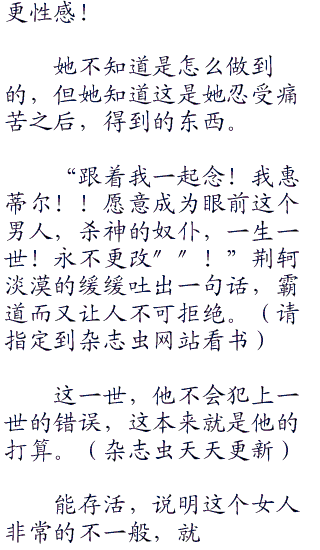 更性感！
她不知道是怎么做到
的，但她知道这是她忍受痛
苦之后，得到的东西。
“跟着我一起念！我惠
蒂尔！！愿意成为眼前这个
男人，杀神的奴仆，一生一
世！永不更改〞〞！”荆轲
淡漠的缓缓吐出一句话，霸
道而又让人不可拒绝。（请
指定到杂志虫网站看书）
这一世，他不会犯上一
世的错误，这本来就是他的
打算。（杂志虫天天更新）
能存活，说明这个女人
非常的不一般，就